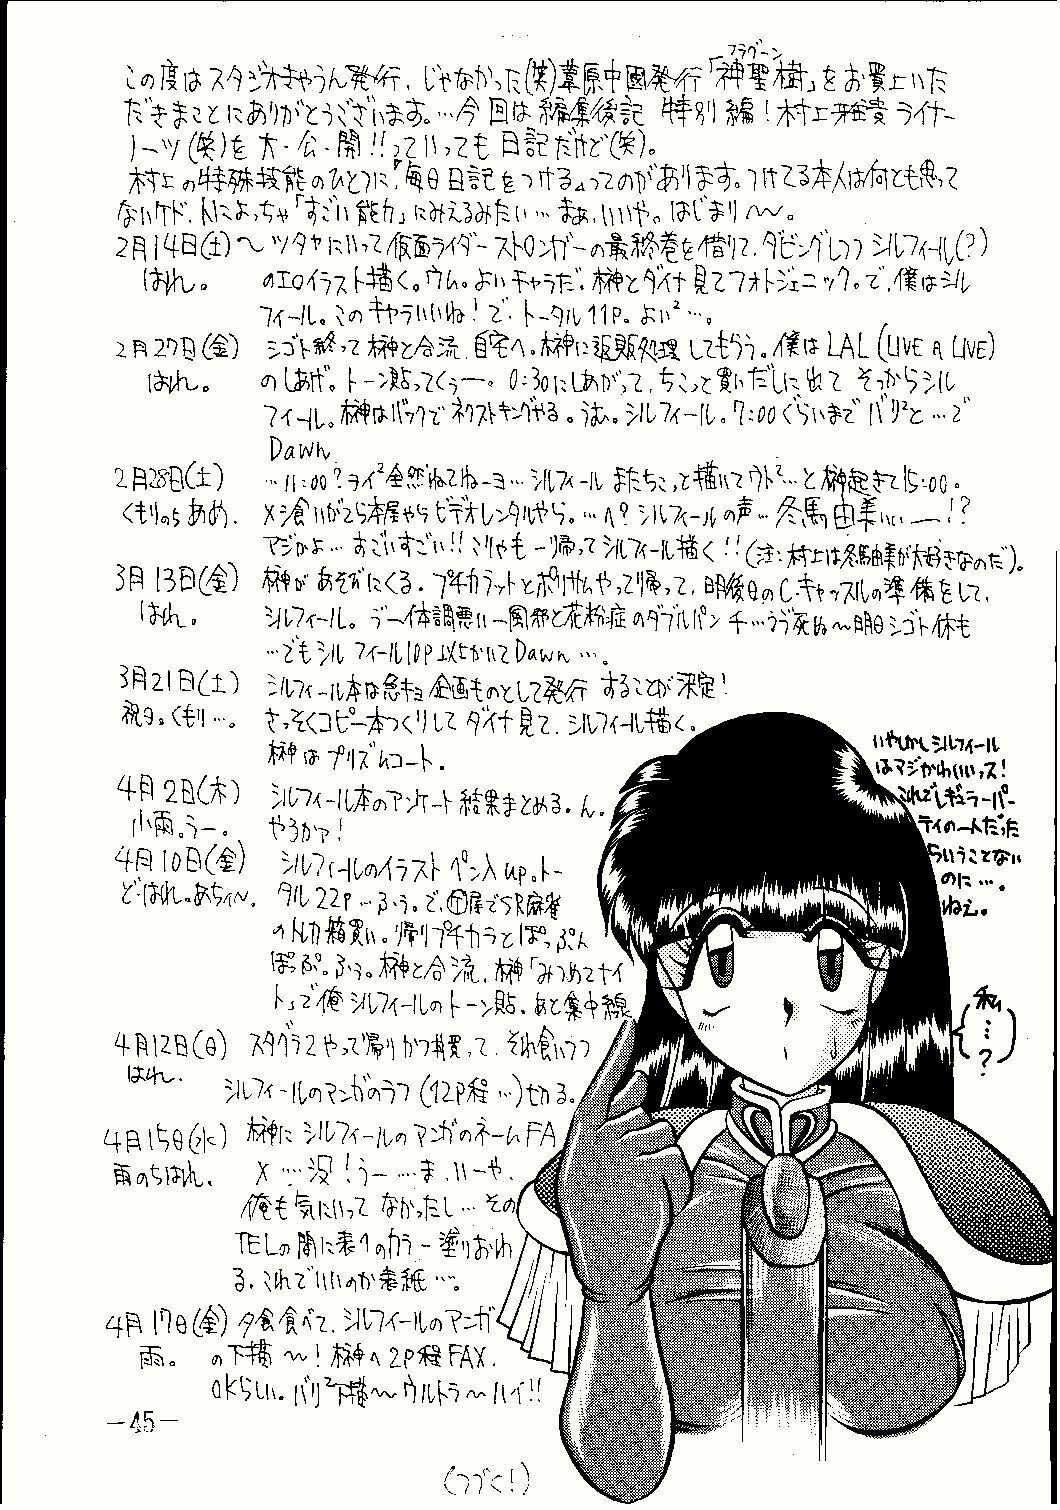 フラグーン
この度はスタジオきゃうん発行、じゃなかった(笑)葦原中國発行「神聖樹」をお買上いた
だきまことにありがとうございます。…今回は編集後記 特別編!村上雅貴ライナー
ノーツ(笑)を大・公・開!!っていっても日記だけど(笑)。
村上の特殊技能のひとつに『毎日日記をつける』ってのがあります。つけてる本人は何とも思って
ないケド、人によっちゃ「すごい能力」にみえるみたい…まぁ、いいや。はじまり〜〜。
2月14日(土)〜 ツタヤにいって仮面ライダーストロンガーの最終巻を借りて、ダビングしつつシルフィール(?)
はれ。 のエロイラスト描く。ウム。よいキャラだ。榊とダイナ見てフォトジェニック。で、僕はシル
フィール。このキャラいいね!で、トータル11P。よい²…。
2月27日(金) シゴト終って榊と合流、自宅へ。榊に返販処理してもらう。僕はLAL(LIVE A LIVE)
はれ。 のしあげ。トーン貼ってくぅー。0:30にしあがって、ちこっと買いだしに出て そっからシル
フィール。榊はバックでネクストキングやる。うむ。シルフィール。7:00ぐらいまでバリ²と…で
Dawn
2月28日(土) …11:00?ライ²全然ねてねーヨ…シルフィールまたちこっと描いてウト²…と榊起きて15:00。
くもりのちあめ。 メシ食いがてら本屋やらビデオレンタルやら。…へ?シルフィールの声…冬馬由美ぃぃ—!?
マジかよ…すごいすごい!!こりゃもー帰ってシルフィール描く!!(注:村上は冬馬由美が大好きなのだ)。
3月13日(金) 榊があそびにくる。プチカラットとポリサムやって帰って、明後日のC.キャッスルの準備をして、
はれ。 シルフィール。うー体調悪いー風邪と花粉症のダブルパンチ…うう゛死ぬ〜明日シゴト休も
…でもシルフィール10P以上かいてDawn…。
3月21日(土) シルフィール本は急キョ企画ものとして発行することが決定!
祝日。くもり…。 さっそくコピー本つくりしてダイナ見て、シルフィール描く。
榊はプリズムコート。
4月2日(木) シルフィール本のアンケート結果まとめる。ん。
小雨。うー。 やろかァ!
4月10日(金) シルフィールのイラストペン入up。トー
ど・はれ。あちぃ〜。 タル22P…ふぅ。で、屋でSR麻雀
のトレカ箱買い。帰りプチカラとぱっぷん
ぽっぷ。ふぅ。榊と合流、榊「みつめてナイ
ト」で俺シルフィールのトーン貼。あと集中線
4月12日(日) スタグラ2やって帰りかつ丼買って、それ食いつつ
はれ。
シルフィールのマンガのラフ(12P程…)切る。
4月15日(水) 榊にシルフィールのマンガのネームFA
雨のちはれ。 X…没!うー…ま、いーや、
俺も気にいってなかったし…その
TELの間に表々のカラー塗りおわ
る、これでいいのか表紙…。
4月17日(金) 夕食食べて、シルフィールのマンガ
雨。 の下描〜!榊へ2P程FAX。
OKらしい。バリ²下描〜ウルトラ〜ハイ!!
いやしかしシルフィール
はマジかわいいッス!
これでレギュラーパー
ティの一人だった
らいうことない
のに…。
ねぇ。
私
…
?
-45-
(つづく!)